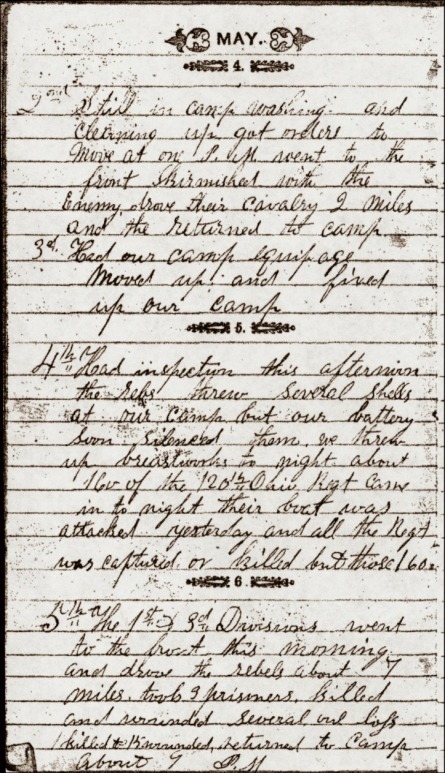 MAY.
4.
2nd Still in camp washing and
cleaning up got orders to
move at one P.M. went to the
front skirmished with the
Enemy drove their cavalry 2 miles
and the returned to camp
3d. Had our camp equipage
moved up and fixed
up our camp
5.
4th Had inspection this afternoon
the rebs threw several shells
at our camp but our battery
soon silenced them, we threw
up breastworks to night about
160 of the 120th Ohio Regt came
in to night their boat was
attacked yesterday and all the Regt
was captured or killed but those 160.
6.
5th The 1st & 3d Divisions went
to the front this morning
and drove the rebels about 7
miles. took 9 prisoners, killed
and wounded several our loss
1 killed & wounded, returned to camp
about P.M